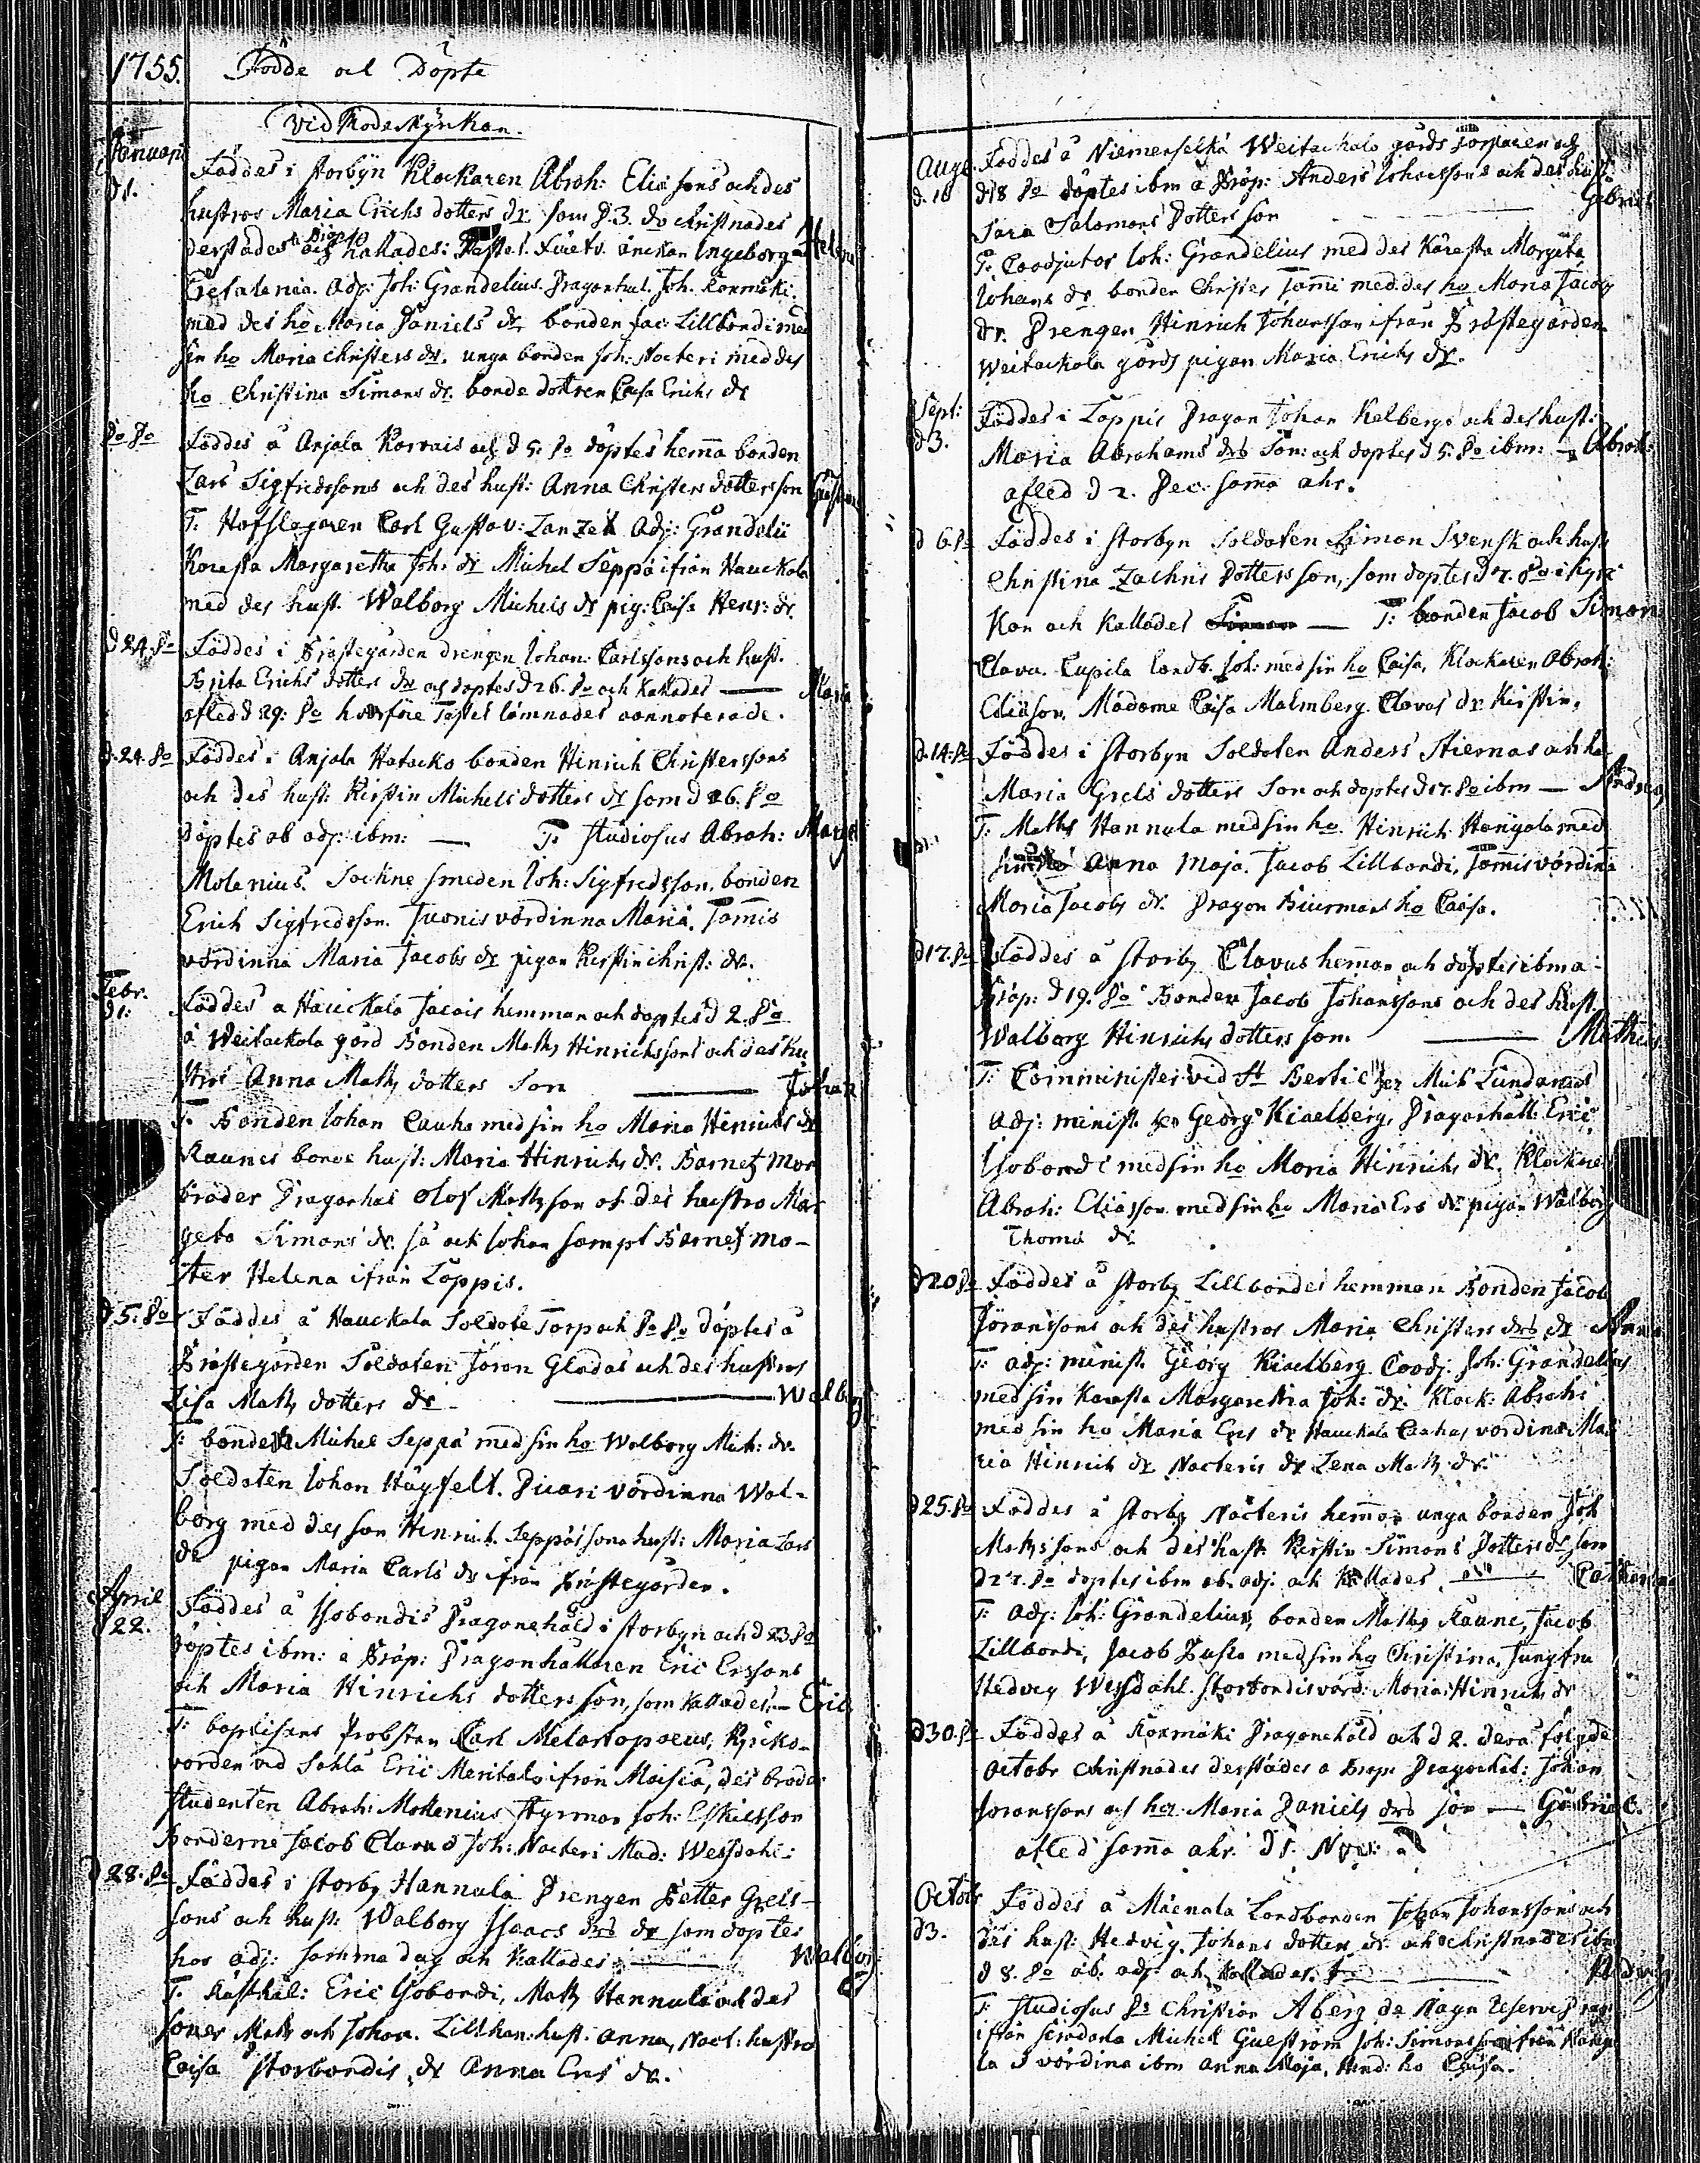 1755. Födde och Döpte
Vid Moderkyrkan.
Januarii
d 1. Föddes i storbyn Klockaren Abrah: Eliæ sons och des
hustros Maria Erichs dotters dr som d 3. do christnades
derstädes och kallades: Helena
Adj: Joh: Grandelius. Dragonhul. Joh. Kormäki
med des ho Maria Daniels dr, bonden Jac: Lillbondi med
sin ho Maria Christers dr. unga bonden Joh: Nacteri med des
ho Christina Simons dr. bonde dottren Caisa Erichs dr
do do Föddes å Anjala Korvais och d 5. do döptes hemma bonden
Lars Sigfredssons och des hust: Anna Christers dotters son
T. Hofslagaren Carl Gustav: Adj: Grandelii
Karesta Margaretha Joh: dr Michel Seppä ifrån Hauckala
med des hust. Walborg Michels dr pig: Caisa Henr: dr.
d 24. do Föddes i Prästegården drengen Johan: Carlssons och hust.
Brita Erichs dotters dr och döptes d 26. do och kallades — Maria
afled d 29. do lämnades oannoterade.
d. 24. do Föddes i Anjala Hatacko bonden Hinrich Christerssons
och des hust: Kirstin Michels dotters dr som d 26. do
döptes ab adj: ibm: — T. Studiosus Abrah: Marg
Molenius. Sockne smeden Joh: Sigfredsson. bonden
Erich Sigfredsson. Juonis värdinna Maria. Tomis
värdinna Maria Jacobs dr pigan Kirstin Christ: dr.
Febr.
d 1. Föddes å Hauckala Jacois hemman och döptes d 2. do
å Weitackola gård Bonden Matts Hinrichssons och des hu
stros Anna Matts dotters Son — Johan
T. Bonden Johan Cauho med sin ho Maria Hinrichs dr
Raunes bonde hust: Maria Hinrichs dr. Barnetz mor
broder Dragonhal Olof Mattsson och des hustro Mar
geta Simons dr. så ock Johan sampt Barnetz mo-
ster Helena ifrån Löppis.
d 5. do Föddes å Hauckala Soldate Torp och do do döptes å
Prästegården Soldaten Jöran Gladas och des hustros
Lisa Matts dotters dr — Walborg
T: bonden Michel Seppä med sin ho Walborg Mich: dr.
Soldaten Johan Högfelt. värdinna Wal-
borg med des son Hinrich. Seppäs sona hust: Maria Lars
dr pigan Maria Carls dr ifrån Prästegården.
April
22. Föddes å Isobondis Dragonehåld i storbyn och d 23 do
döptes ibm: a Präp: Dragonhållaren Eric Erssons
och Maria Hinrichs dotters son, som kallades — Eric
T: baptisans Probsten Carl Melartopoeus, Kyrko-
värden vid Eric ifrån des broder
Studenten Abrah: Molenius Styrman Joh: Eskilsson
Bönderne Jacob Clavus Joh: Nacteri Mad: Wessdahl:
d 28. do Föddes i storby Hannula Drengen Petter Grels-
sons och hust: Walborg Isaacs drs dr som döptes
hos adj: samma dag och kallades — Walborg
T. Eric Isobondi, Matts Hannula och des
söner Matts och Johan. Lillhan: hust: Anna, Nact: hustro
Caisa Storbondis dr Anna Ers dr.
Aug.
d. 16 Föddes å Niemenselkä Weitackala gårds torparen och
d 18 do döptes ibm a Präp: Anders Johanssons och des hust:
Sara Salomons Dotters son — Gabriel
T: Coadjutor Joh: Grandelius med des Käresta Margeta
Johans dr bonden Christer Tommi med des ho Maria Jacobs
dr. Drengen Hinrich Johansson ifrån Prästegården
Weitackala gårds pigan Maria Erichs dr.
Sept:
d 3. Föddes i Löppis Dragon Johan Kelbergs och des hust:
Maria Abrahams drs Son: och döptes d 5. do ibm: — Abrah:
afled d 2. Dec: samma åhr.
d 6. do Föddes i Storbyn Soldaten Simon Svensk och hust
Christina Zachris Dotters son, som döptes d 7. do i Kyr-
kan och kallades — T: bonden Jacob Simon
Clava. Cupila landb. Joh: med sin ho Caisa, Klockaren Abrah:
Eliæson. Madame Caisa Malmberg. Clavas dr Kirstin.
d. 14. do Föddes i Storbyn Soldaten Anders Stiernas och ho
Maria Grels dotters Son och döptes d 17. do ibm — Andreas
T: Matts Hannula med sin ho. Hinrich Hangola med
Anna Maja. Jacob Lillbondi, Tommis värdina
Maria Jacobs dr. Dragon Biurmans ho Caisa.
d 17. do Föddes å Storby Clavus hemman och döptes ibm a
Präp: d 19. do Bonden Jacob Johanssons och des hust
Walborg Hinrichs dotters son. — Mathias
T: Comminister vid Mich Lundanus
Adj: minist: Georg Kiaelberg, Dragonhåll: Eric
Isobondi med sin ho Maria Hinrichs dr. Klockare
Abrah: Eliasson med sin ho Maria Ers dr pigan Walborg
Thoma dr
d 20 do Föddes å storby Lillbondes hemman Bonden Jacob
Jöranssons och des hustros Maria Christers drs dr Anna
T: Adj: minist. Georg Kiaelberg Coadj. Joh: Grandelius
med sin Karesta Margaretha Joh: dr. Klock: Abrahs
med sin ho Maria Ers dr Hauckala Cauhas värdina Ma-
ria Hinrich dr Nacteris dr Lena Matts dr.
d 25. do Föddes å Storby Nacteris hemman unga bonden Joh
Matssons och des hust. Kirstin Simons Dotters dr som
d 27. do döptes ibm ab. adj. och kallades — Catharina
T: Adj: Joh: Grandelius, bonden Matts Raune, Jacob
Lillbondi, Jacob med sin ho Christina, Jungfru
Hedvig Wessdahl. Storbondis värd: Maria Hinrich dr
d 30. do Föddes å Kormäki Dragonehåld och d 2. derå följde
October christnades derstädes a Präp: Dragonhål: Johan
Joranssons och Maria Daniels drs son — Gabriel.
afled samma åhr d 1. Nov:
Octobr
d 3. Föddes å Landbonden Johan Johanssons och
des hust: Hedvig Johans dotters dr. och christnades ibm
d 8. do ab. adj: och kallades — Hedvig
T: Studiosus Christian Åberg
ifrån Michel Joh: Simonsson ifrån
la värdina ibm Anna Maja. ho Caisa.